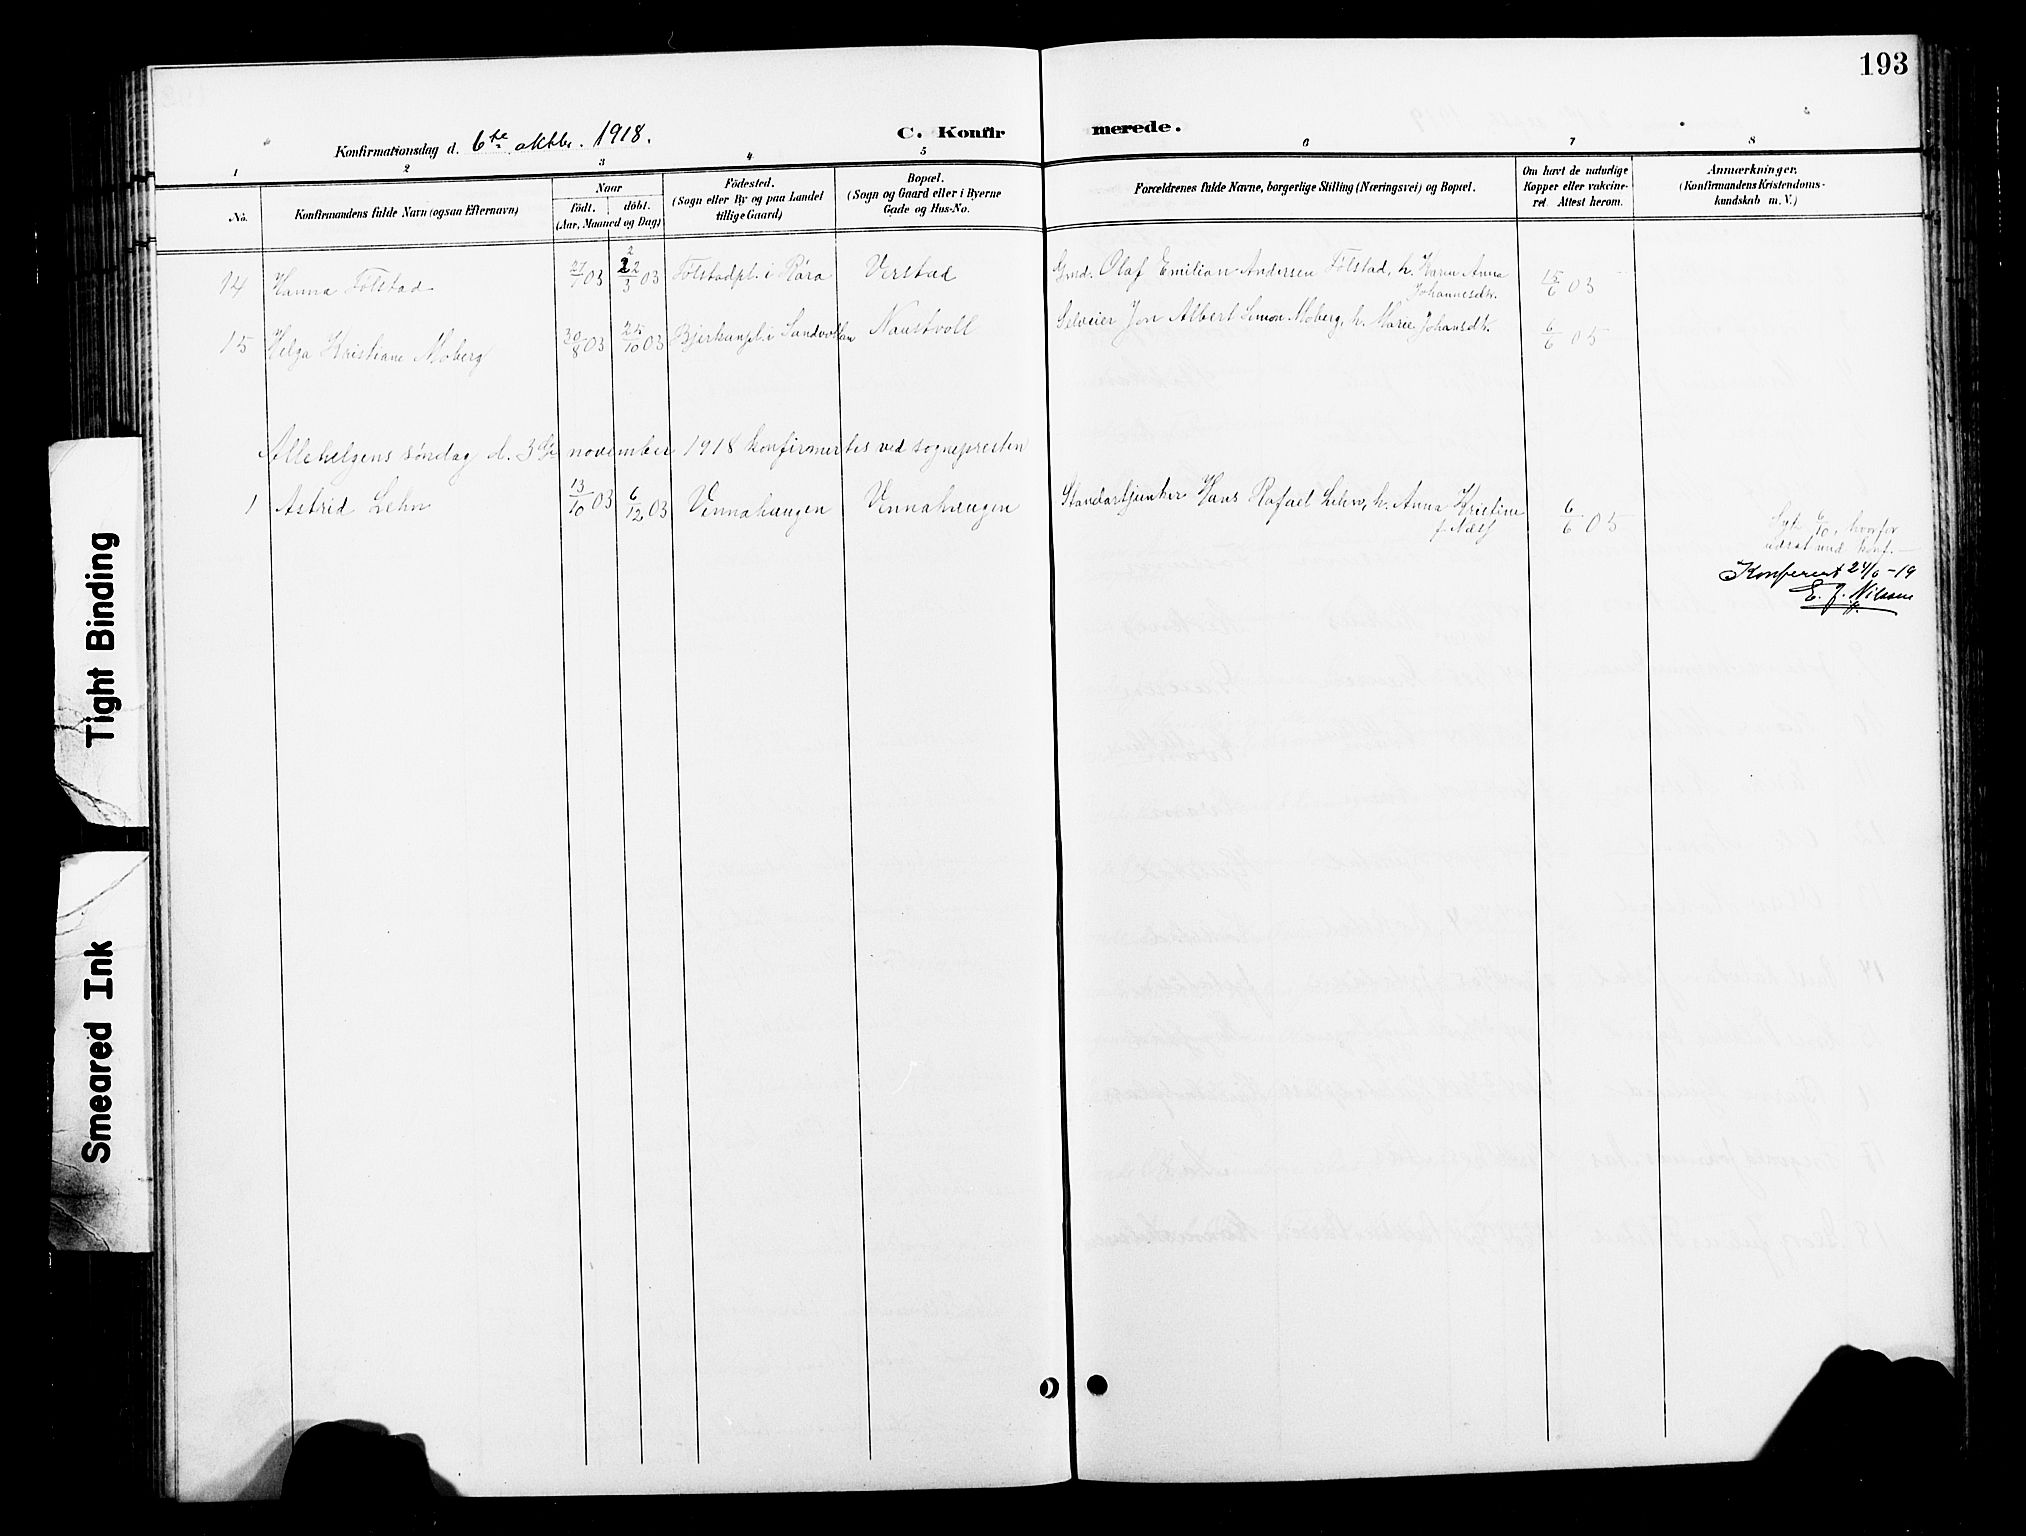 193
Konfirmationsdag d. 6te oktbr. 1918.
C. Konfirmerede.
1 2 3 4 5 6 7 8
No.
Konfirmandens fulde Navn (ogsaa Efternavn)
Naar
födt. döbt.
(Aar, Maaned og Dag)
Födested.
(Sogn eller By og paa Landet
tillige Gaard)
Bopæl.
(Sogn og Gaard eller i Byerne
Gade og Hus-No.
Forældrenes fulde Navne, borgerlige Stilling (Næringsvei) og Bopæl.
Om havt de naturlige
Kopper eller vakcine-
ret. Attest herom.
Anmærkninger.
(Konfirmandens Kristendoms-
kundskab m. V.)
14 Hanna Folstad 27/7 03 22/3 03 Folstadpl. i Röra Verstad Gmd. Olaf Emilian Andersen Folstad, h. Karen Anna
Johannesdtr. 15/6 03
15 Helga Kristiane Moberg 30/8 03 25/10 03 Bjerkanpl. i Sandvollan Naustvoll Selveier Jon Albert Simon Moberg, h. Marie Johansdtr. 6/6 05
Allehelgens söndag d. 3dje november 1918 konfirmertes ved sognepresten
1 Astrid Lehn 13/10 03 6/12 03 Vennahaugen Vennahaugen Standartjunker Hans Rafael Lehn, h. Anna Kristine
f. Næss 6/6 05
Syk 6/10, hvorfor
konf.
Konferert 24/6-19
E. J. Nilssen
Tight Binding
Smeared Ink